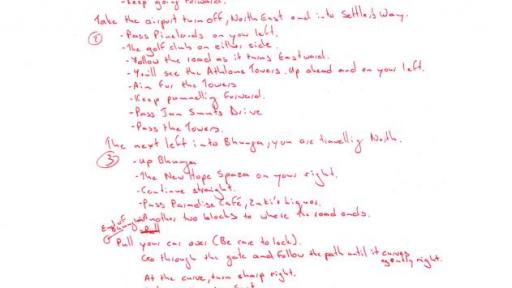 -Keep going forward.
Take the airport turn off, North East and into Settlers Way.
-Pass Pinelands on your left.
-The golf club on either side.
-Follow the road as it turns Eastward.
-You'll see the Athlone Towers. Up ahead and on your left.
-Aim for the Towers
-Keep pummelling Forward.
-Pass Jan Smuts Drive
-Pass the Towers.
The next left into Bhunga, you are travelling North.
3
-Up Bhunga
-The New Hope Spaza on your right.
-Continue straight.
-Pass Paradise Café, Zuki's Liquor.
-Another two blocks to where the road ends.
End of Bhunga
Pull your car over (Be sure to lock).
Go through the gate and follow the path until it curves gently right.
At the curve, turn sharp right.